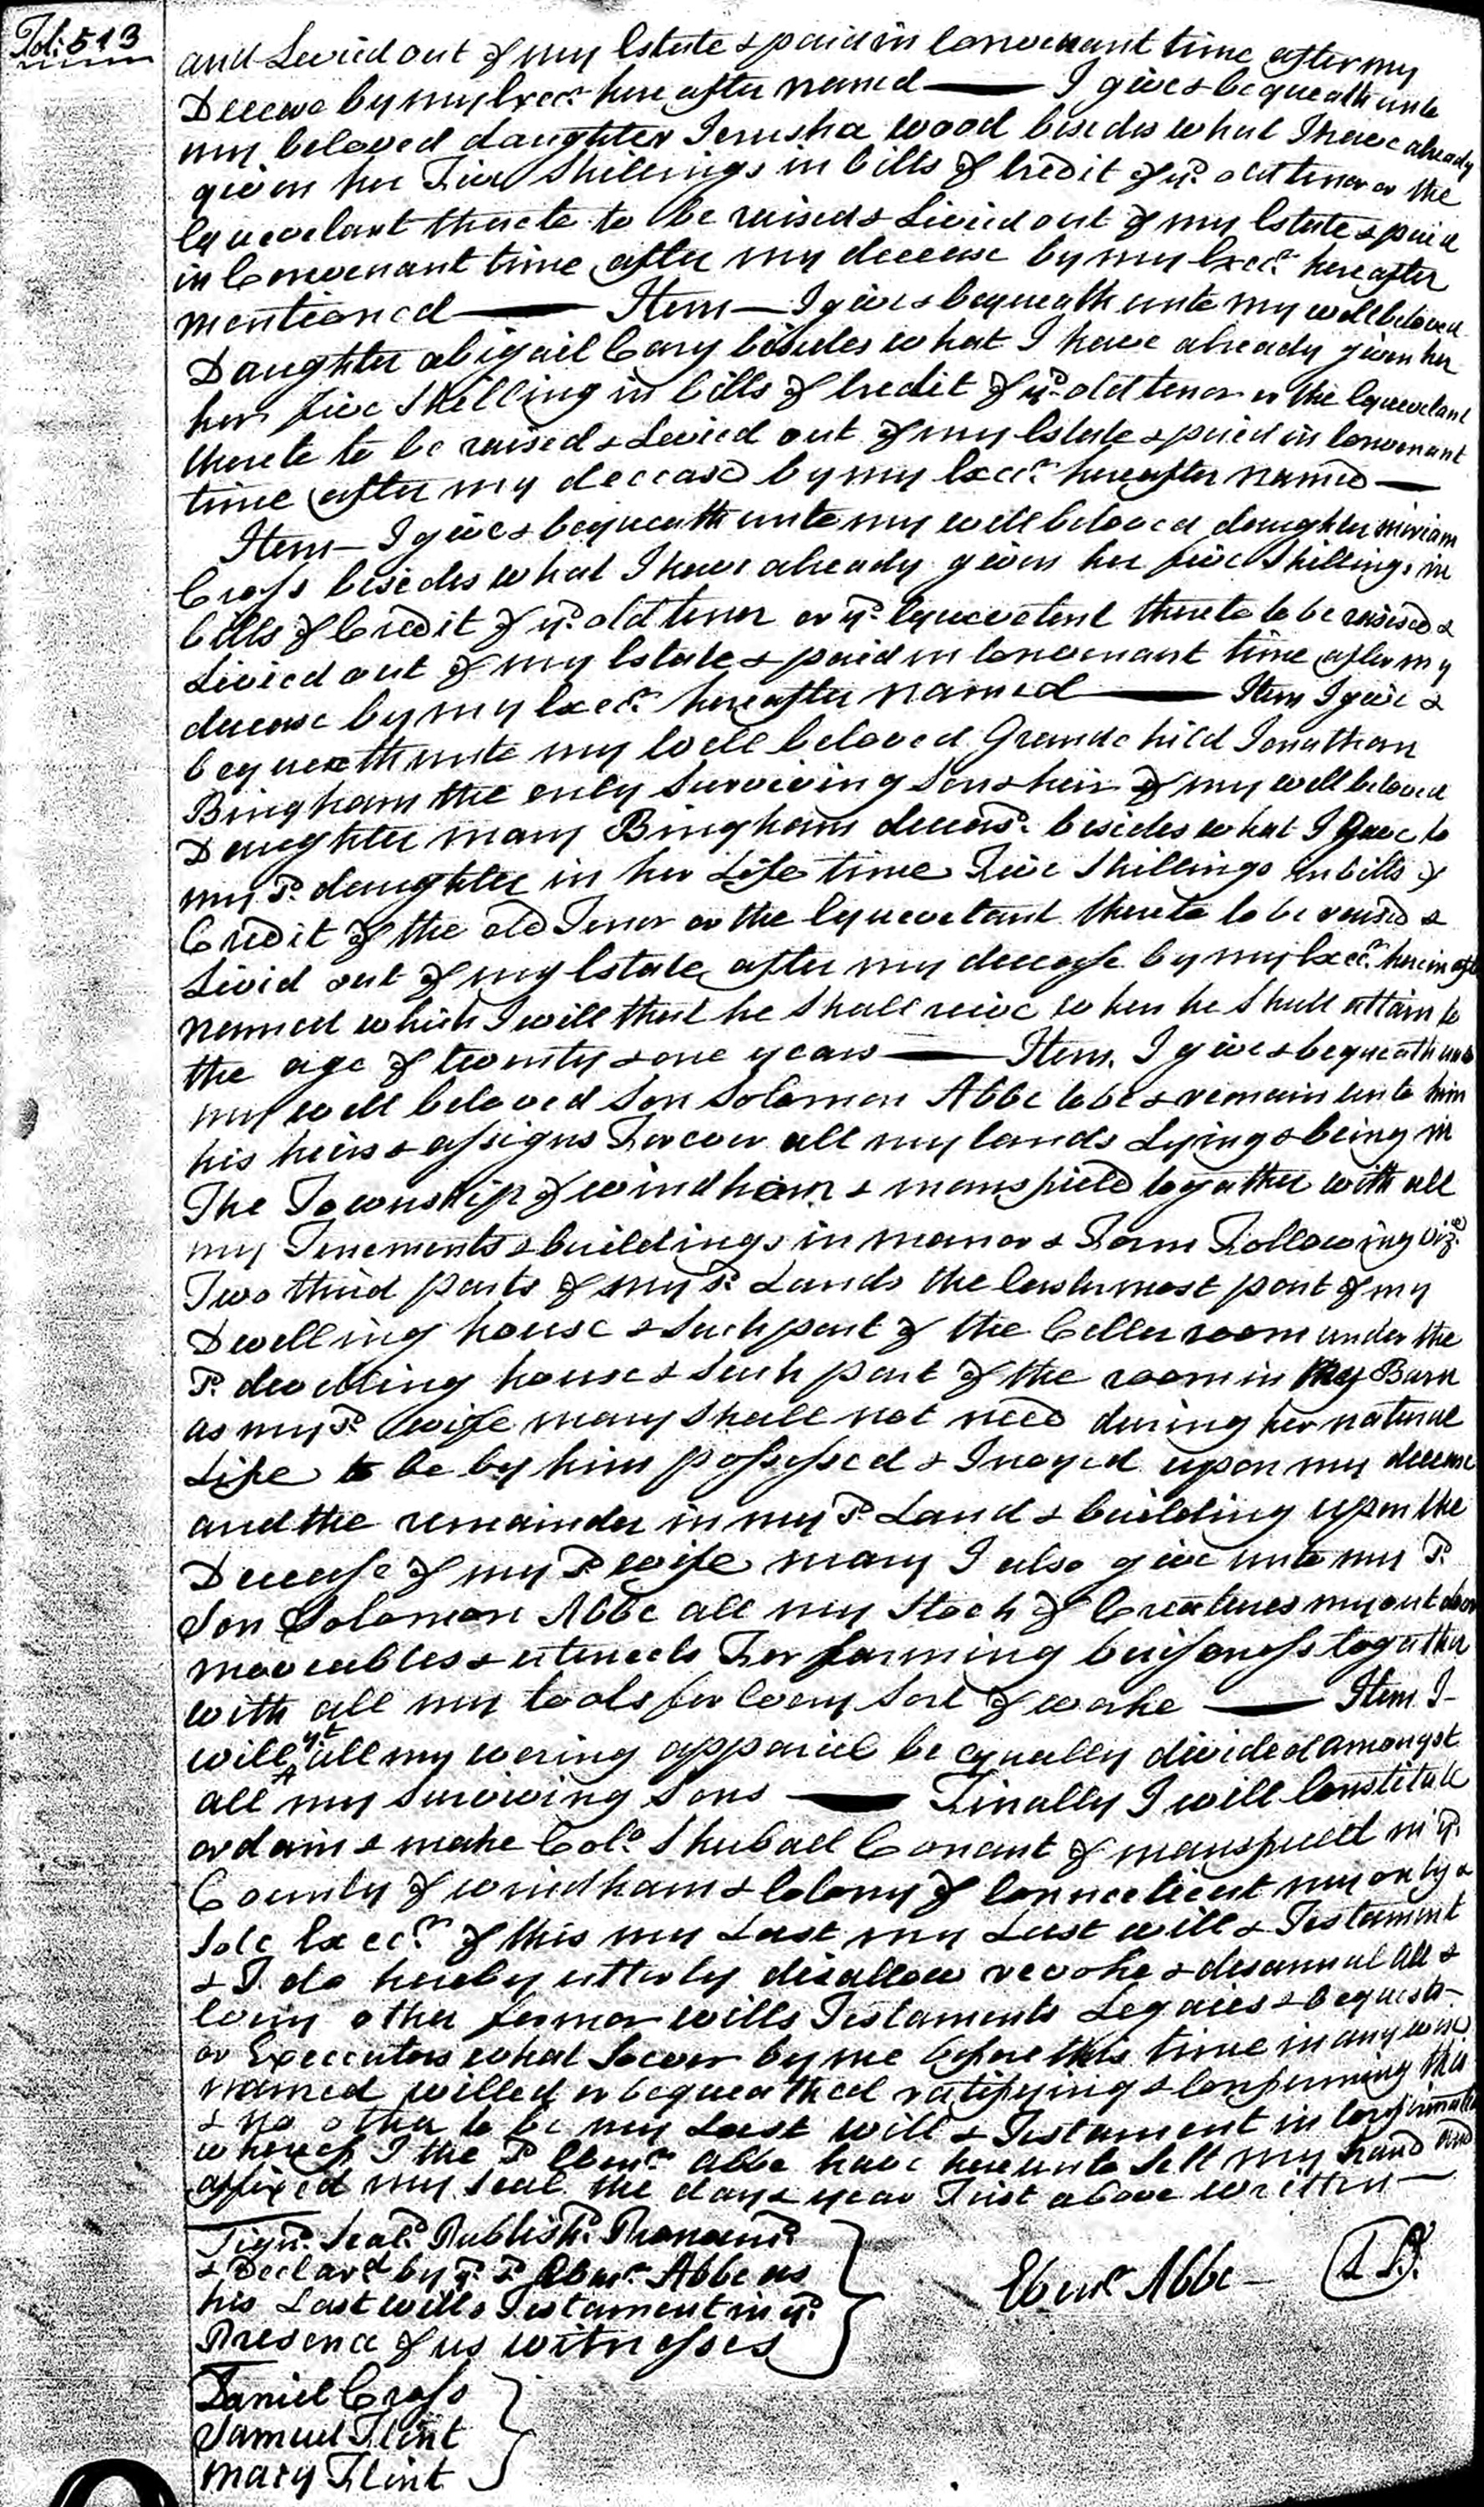 Fol: 513
and Levied out of my Estate & paid in Convenant time after my
Decease by my Execr. here after named — I give & bequeath unto
my beloved daughter Jerusha wood besides what I have already
given her Five Shillings in bills of Credit of ye. old tenor or the
Equevelant thereto to be raised & Livied out of my Estate & paid
in Convenant time after my decease by my Execr. hereafter
mentioned — Item — I give & bequeath unto my well beloved
Daughter abigail Cary besides what I have already given her
her five Shilling in bills of Credit of ye. old tenor or the Equevelant
thereto to be raised & Levied out of my Estate & paid in Convenant
time after my decease by my Execr. hereafter named —
Item — I give & bequeath unto my well beloved daughter miriam
Cross besides what I have already given her five Shillings in
bills of Credit of ye. old tenor or ye. Equevelent thereto to be raised &
Livied out of my Estate & paid in Convenant time after my
decease by my Execr. hereafter named — Item I give &
bequeath unto my well beloved Grandchild Jonathan
Bingham the only Surviving Son & heir of my well beloved
Daughter mary Bingham deceasd. besides what I gave to
my Sd. daughter in her Life time Five Shillings in bills of
Credit of the old Tenor or the Equevelant thereto to be raised &
Livid out of my Estate after my decease by my Execr. herein aftr
named which I will that he Shall reive when he Shall attain to
the age of twenty & one years — Item. I give & bequeath unto
my well beloved Son Solomon Abbe to be & remain unto him
his heirs & assigns Forever all my lands Lying & being in
The Township of windham & mansfield together with all
my Tenements & buildings in manor & Form Following viz.
Two third parts of my Sd. Lands the Eastermost part of my
Dwelling house & Such part of the Celler room under the
Sd. dwelling house & Such part of the room in my Barn
as my Sd. wife mary Shall not need during her natural
Life to be by him possessed & Inoyed upon my decease
and the remainder in my Sd. Land & building upon the
Decease of my Sd. wife mary I also give unto my Sd.
Son Solomon Abbe all my Stock of Creatures my out door
moveables & utencels For farming buisoness together
with all my tools for Every Sort of worke — Item I -
will yt all my wering apparicel be equally divided amongst
all my Surviving Sons — Finally I will Constitute
ordain & make Colo. Shubael Conant of mansfield in ye.
County of windham & Colony of Connecticut my only &
Sole Execr. of this my Last my Last will & Testament
& I do hereby utterly disallow revoke & disannul All &
Every other former wills Testaments Legaces & bequests
or Executors what Soever by me before this time in any wise
named willed or bequeathed ratifying & Confirming this
& no other to be my Last will & Testament in Confirmation
whereof I the Sd. Ebenr. Abbe have hereunto Sett my hand and
affixed my Seal the day & year First above written —
Signd. Seald. Publishd. Pronouncd.
& Declard by ye. Sd. Ebenr. Abbe as
his Last will & Testament in ye.
Presence of us witnesses
Ebenr. Abbe — (L S).
Daniel Cross
Samuel Flint
mary Flint